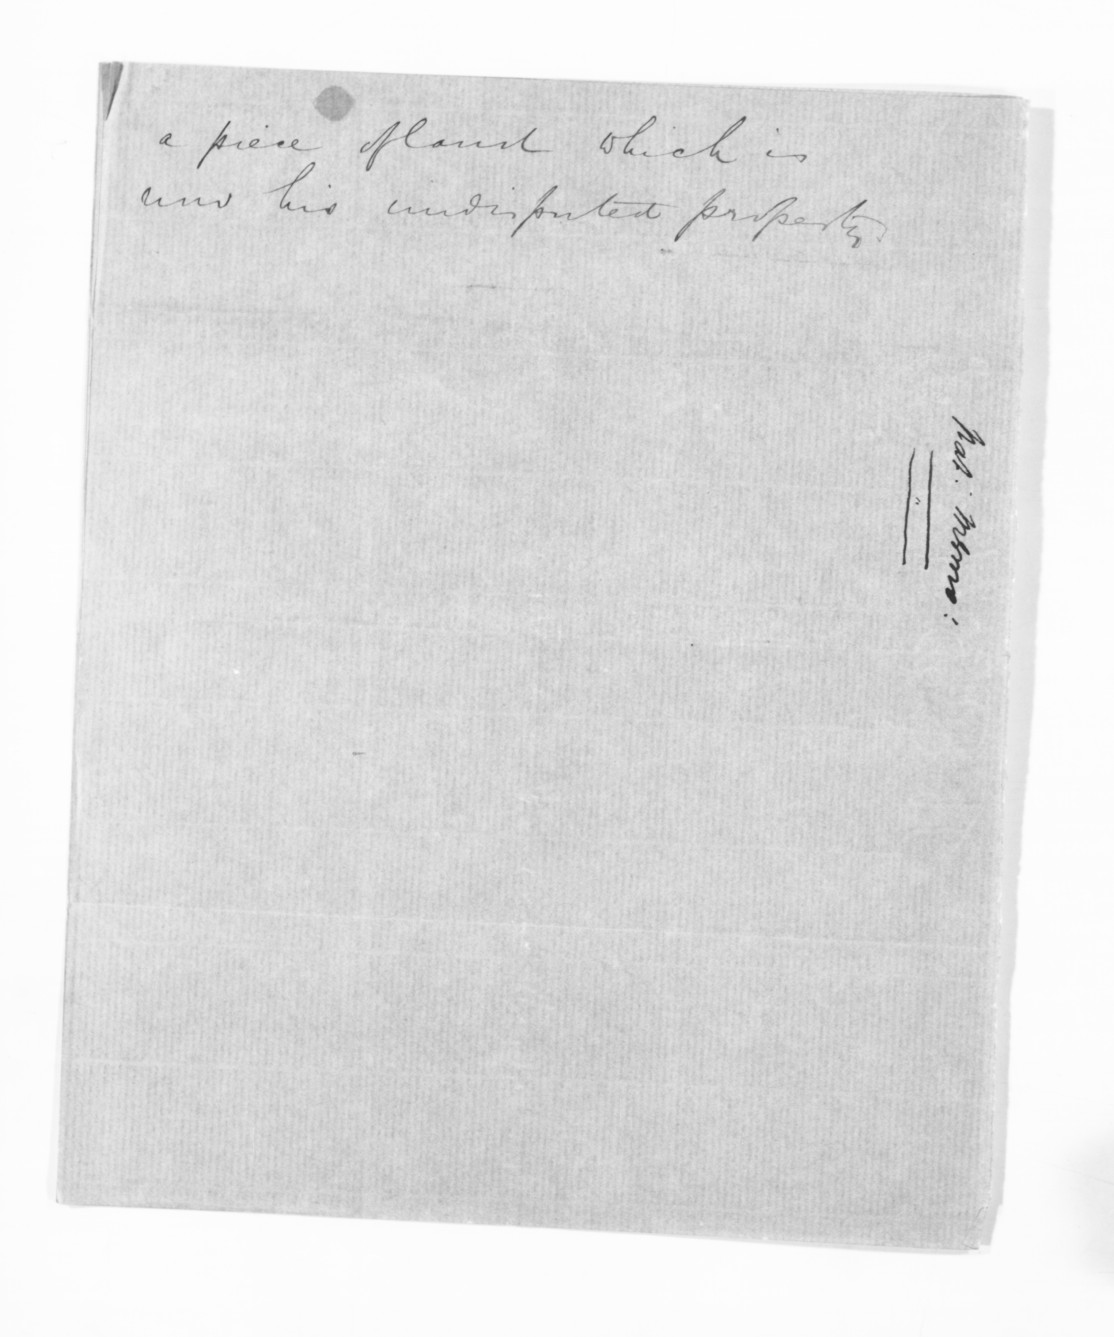 a piece of land which is
now his undisputed property.
Nat: Memo: